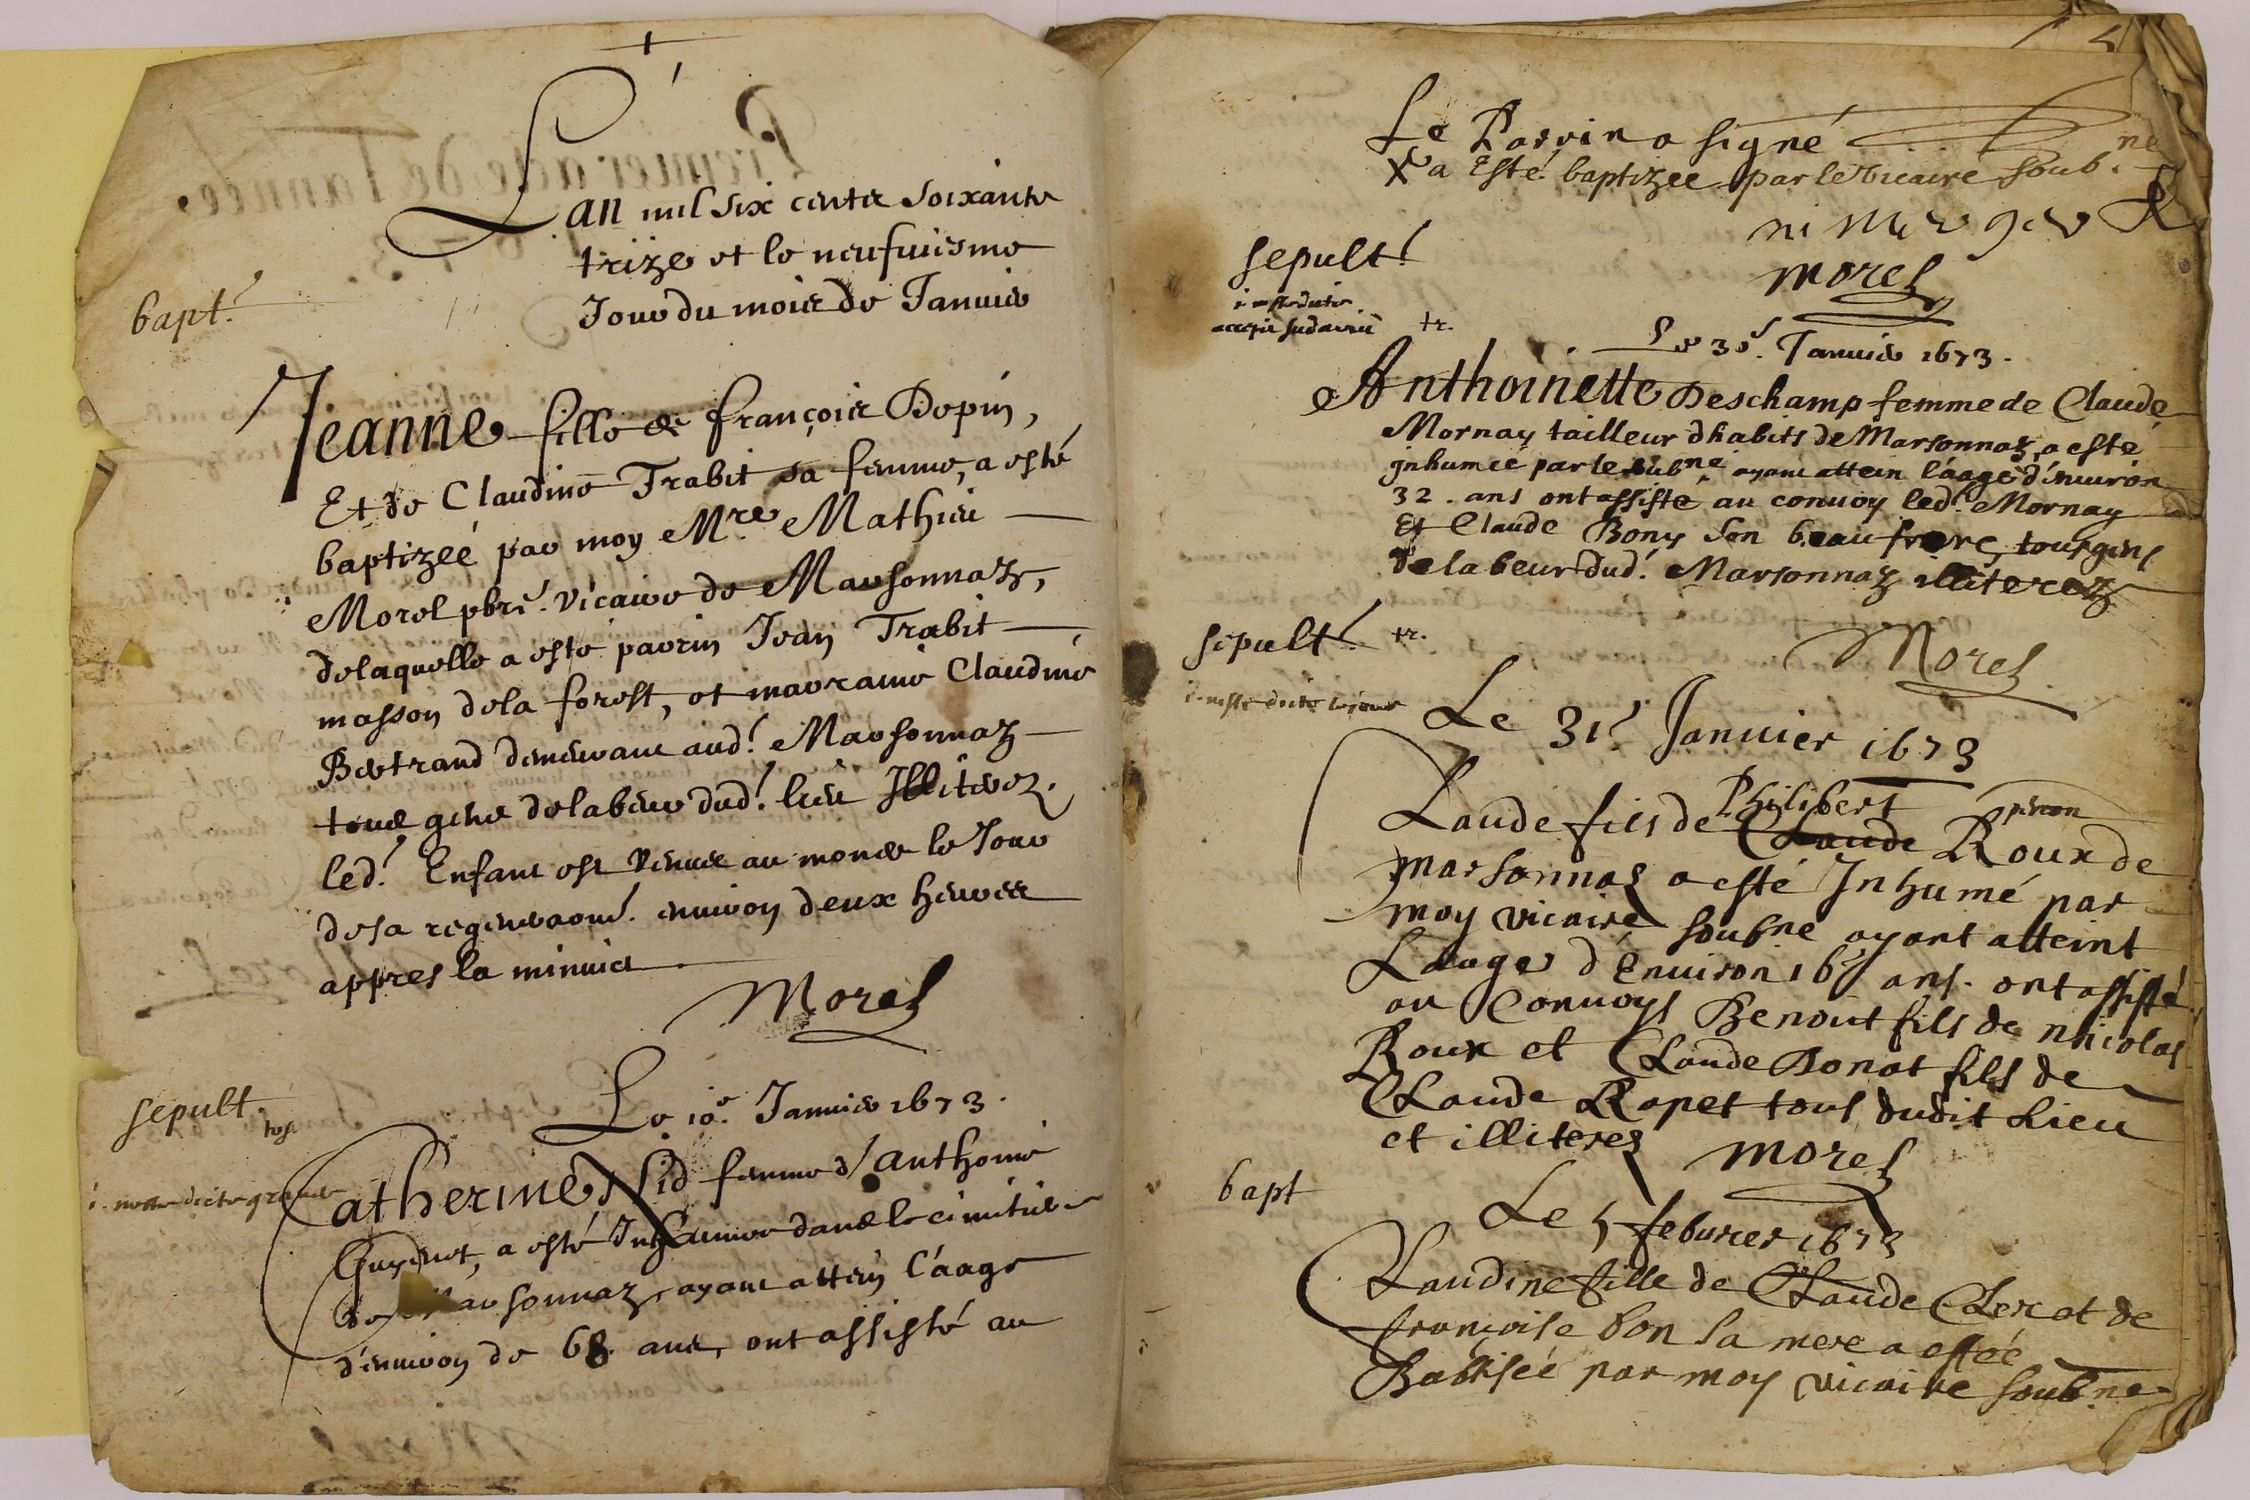 L'an mil six cents soixante
treize et le neufuiesme
Jour du mois de Januier
bapt.
Jeanne fille de françois Dopin,
Et de Claudine Trabit sa femme, a esté
baptizée par moy Mre Mathieu
Morel pbre. vicaire de Marsonnaz,
delaquelle a esté parrin Jean Trabit
masson dela forest, et marraine Claudine
Bertrand demeurant aud. Marsonnaz
tous gens delabeur dud. lieu Illiterez.
led. Enfant est venue au monde le Jour
desa regeneraon. enuiron deux heures
appres la minuict
Morel
sepult.
Le 10e. Januier 1673.
Catherine femme d'Anthoine
Guyenot, a esté Inhumée dans le cimitiere
de Marsonnaz, ayant attein l'aage
d'enuiron de 68 ans, ont assisté au
Le Parrin a signé
X a Esté baptizee par le vicaire soub.ne
Morel
sepult.
tr.
Le 30e. Januier 1673.
Anthoinette Deschamp femme de Claude
Mornay tailleur dhabits de Marsonnaz, a esté
jnhumée par le subne ayant attein laage d'enuiron
32. ans ont assisté au conuoy led. Mornay
Et Claude Bony son beau frere, tous gens
de labeur dud. Marsonnaz illiterez
Morel
sepult.
tr.
Le 31e Januier 1673
Claude fils de Philibert Claude Roux de
Marsonnas a esté Inhumé par
moy vicaire soubne ayant atteint
Laage d'Enuiron 16 ans. ont assisté
au Conuoys Benoit fils de nicolas
Roux et Claude Donat fils de
Claude Rapet tous dudit Lieu
et illiteres
Morel
bapt
Le 5 feburer 1673
Claudine fille de Claude Clerc et de
françoise bon sa mere a estéé
Babtiséé par moy vicaire soubne